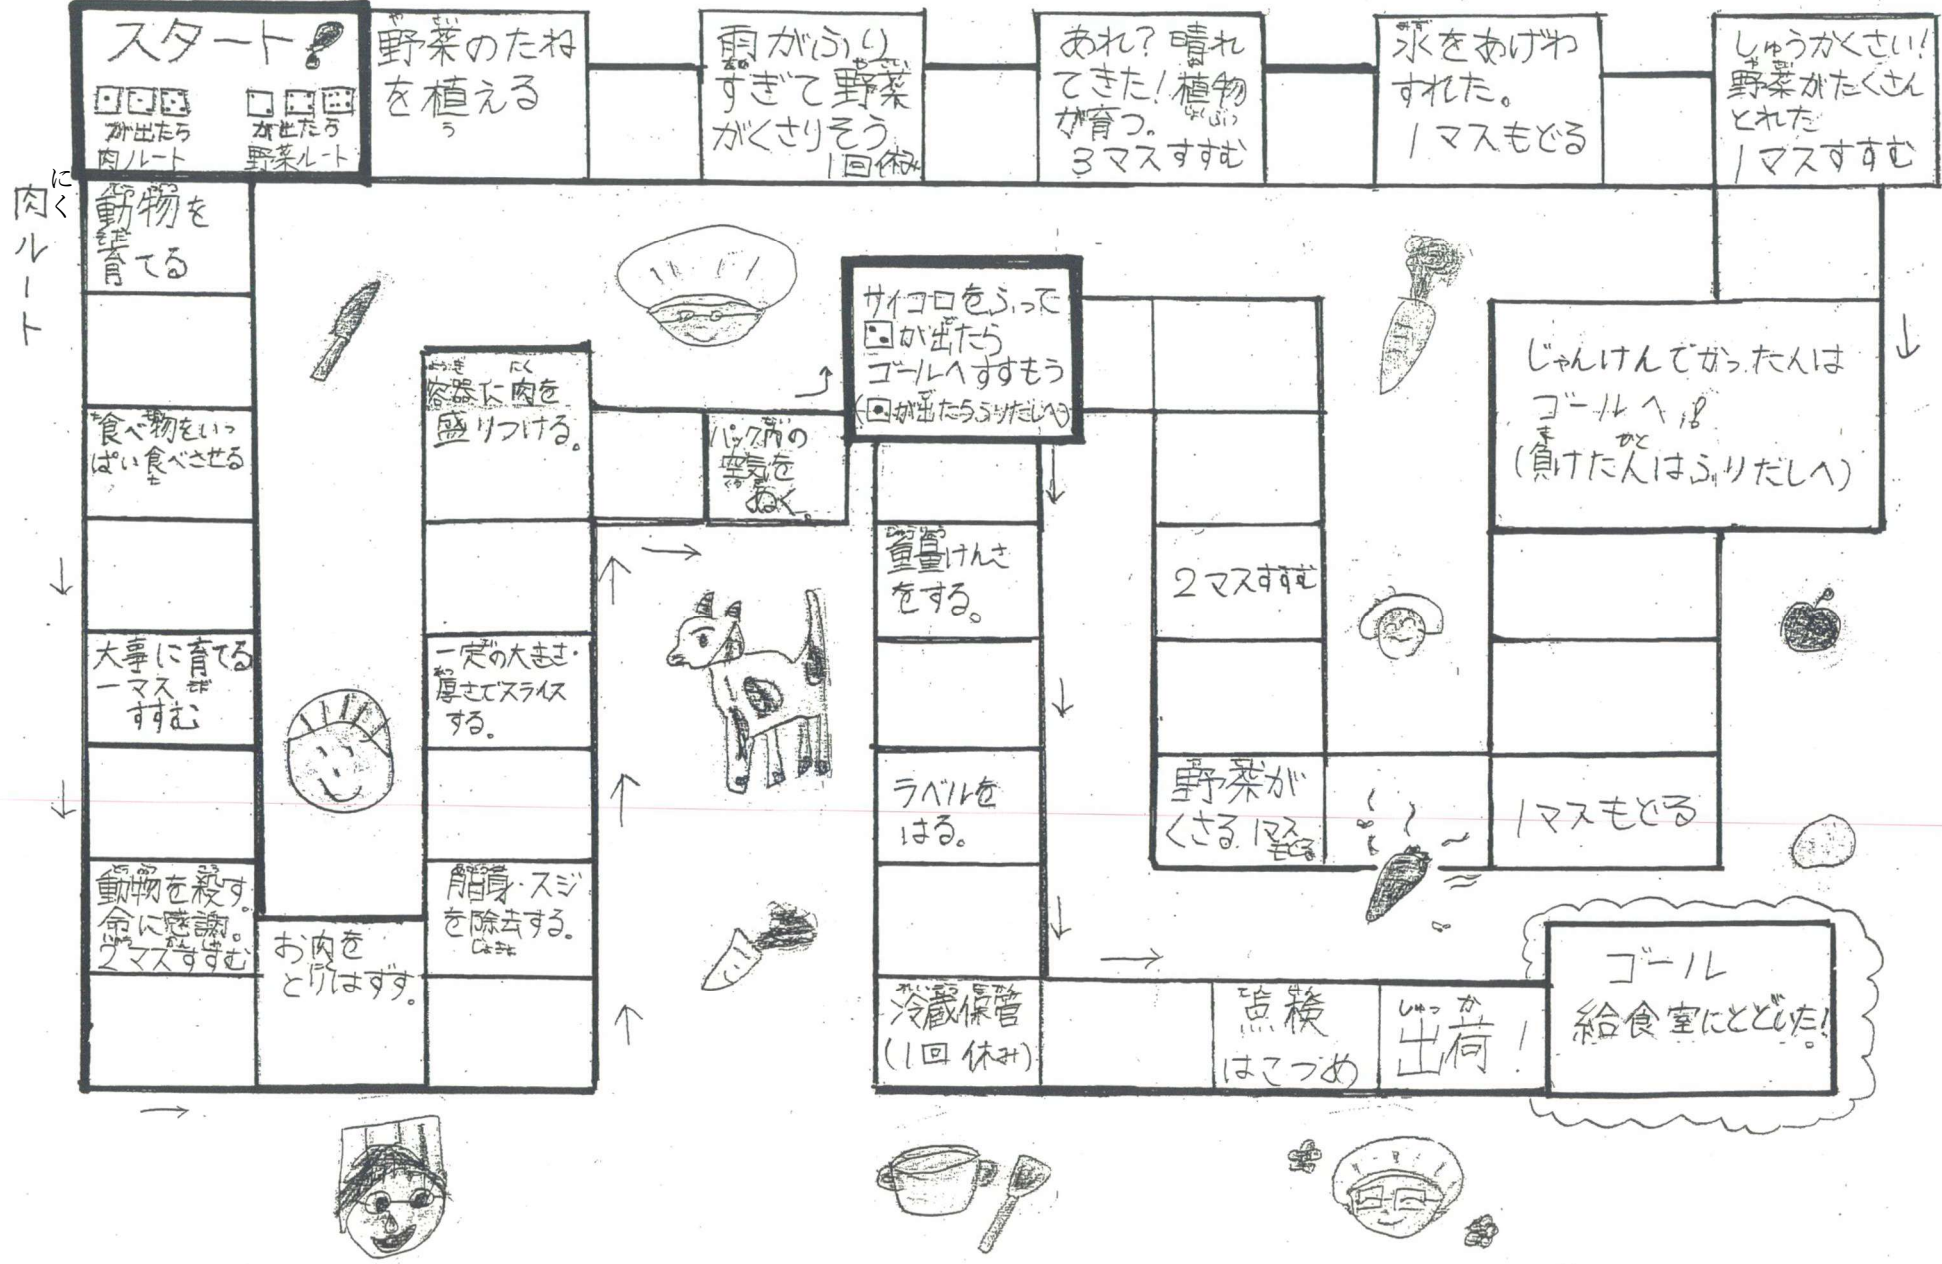 スタート
が出たら
肉ルート
が出たら
野菜ルート
野菜のたね
を植える
雨がふり
すぎて野菜
がくさりそう
1回休み
あれ？晴れ
てきた！植物
が育つ。
3マスすすむ
水をあげわ
すれた。
1マスもどる
しゅうかくさい！
野菜がたくさん
とれた
1マスすすむ
肉ルート
にく
動物を
育てる
食べ物をいっ
ぱい食べさせる
大事に育てる
一マス
すすむ
動物を殺す。
命に感謝。
2マスすすむ
お肉を
とりはずす。
脂身・スジ
を除去する。
じょきょ
一定の大きさ・
厚さでスライス
する。
ようき にく
容器に肉を
盛りつける。
パック内の
空気を
ぬく。
サイコロをふって
が出たら
ゴールへすすもう
(が出たらふりだしへ)
重量けんさ
をする。
ラベルを
はる。
冷蔵保管
(1回休み)
点検
はこづめ
しゅっか
出荷！
ゴール
給食室にとどいた！
2マスすすむ
野菜が
くさる 1マス
もどる
1マスもどる
じゃんけんでかったんは
ゴールへ
(負けたんはふりだしへ)